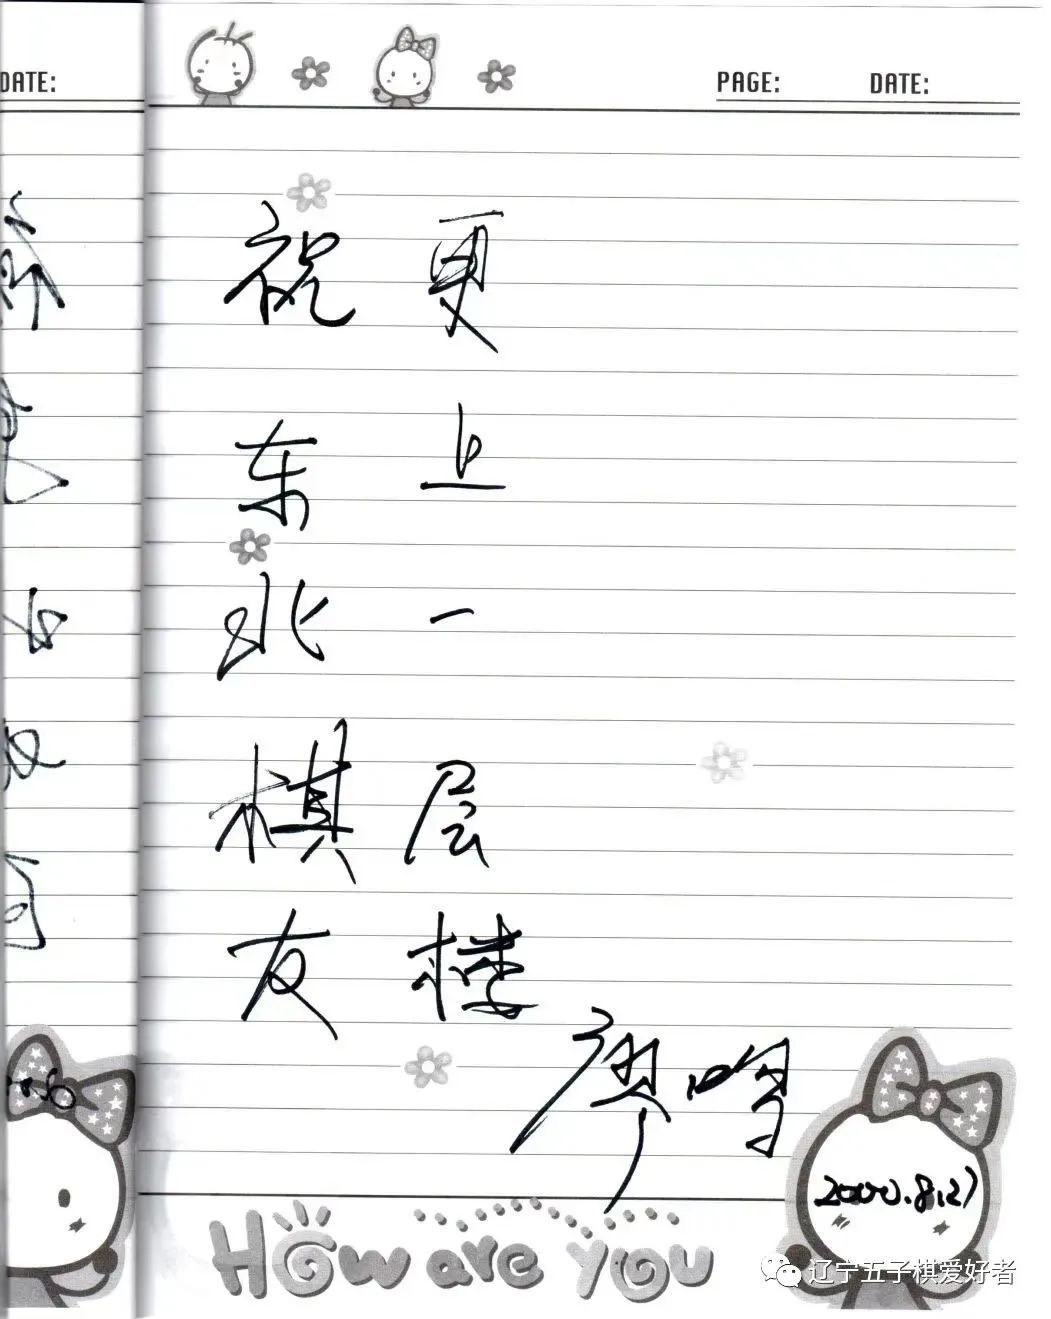 DATE:
PAGE: DATE:
祝东北棋友
更上一层楼
2000.8.27
How are you
辽宁五子棋爱好者